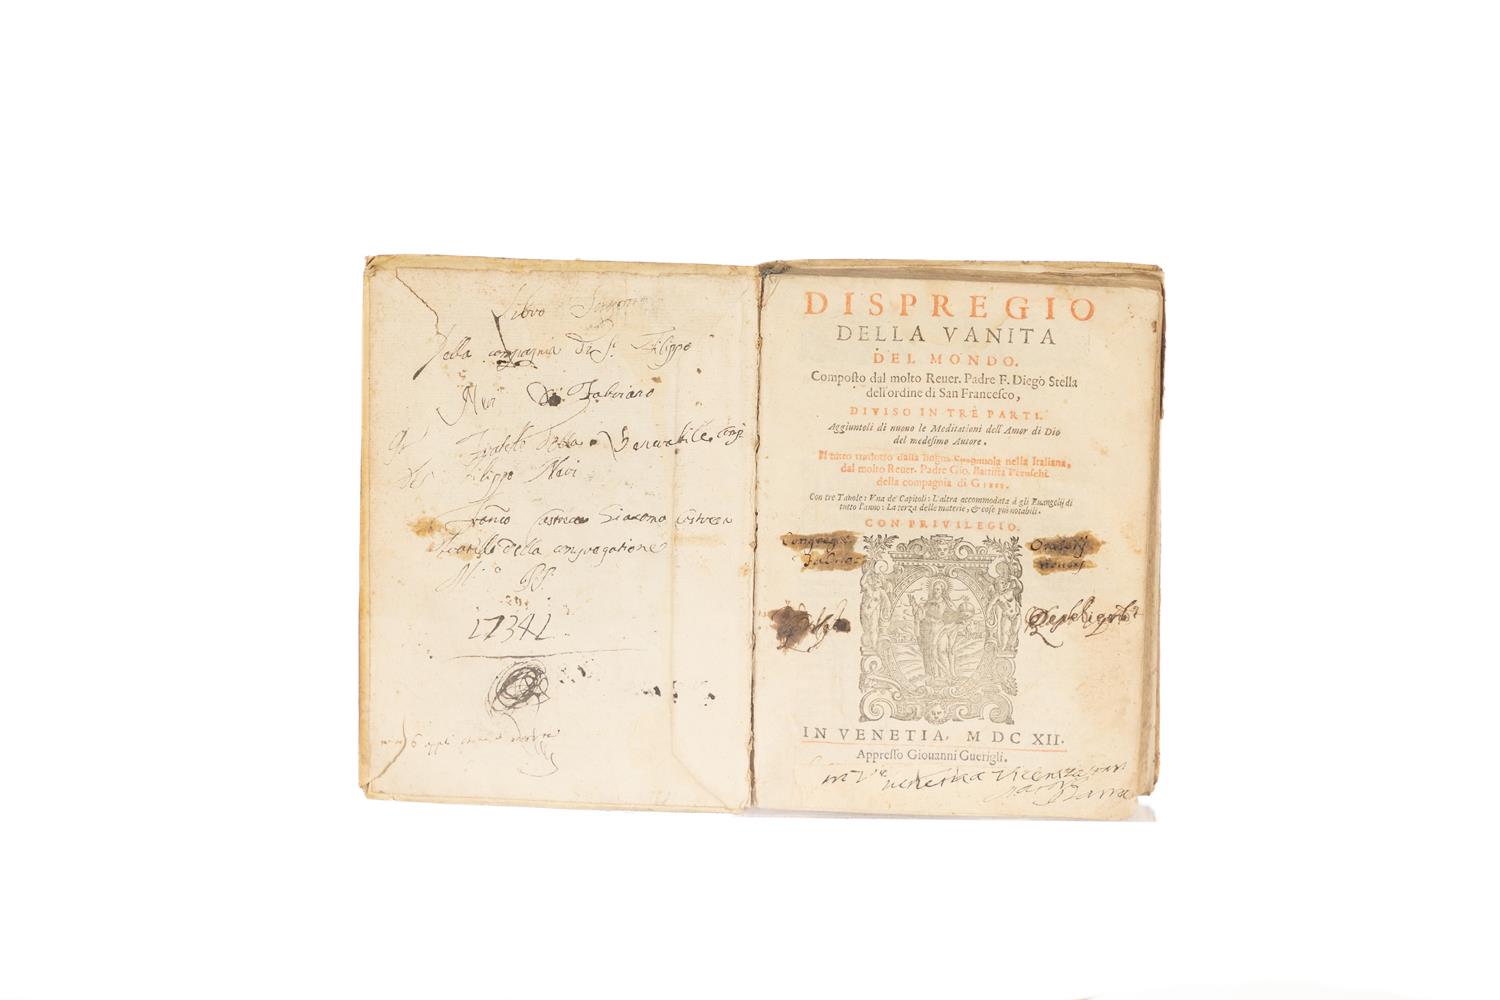 Libro
della compagnia di S. Filippo
Neri Di Fabriano
fratello della Venerabile comp
Filippo Neri
Franco Castreca Giacomo Castreca
fratello della congregatione
17341
DISPREGIO
DELLA VANITA
DEL MONDO.
Composto dal molto Reuer. Padre F. Diego Stella
dell'ordine di San Francesco,
DIVISO IN TRE PARTI.
Aggiuntoli di nuouo le Meditationi dell'Amor di Dio
del medesimo Autore.
Il tutto tradotto dalla lingua Spagnuola nella Italiana,
dal molto Reuer. Padre Gio. Battista Peruschi
della compagnia di GIESV.
Con tre Tauole: Vna de' Capitoli: L'altra accommodata à gli Euangelij di
tutto l'anno: La terza delle materie, & cose più notabili.
CON PRIVILEGIO.
Oratorij
IN VENETIA, MDCXII.
Appresso Giouanni Guerigli.